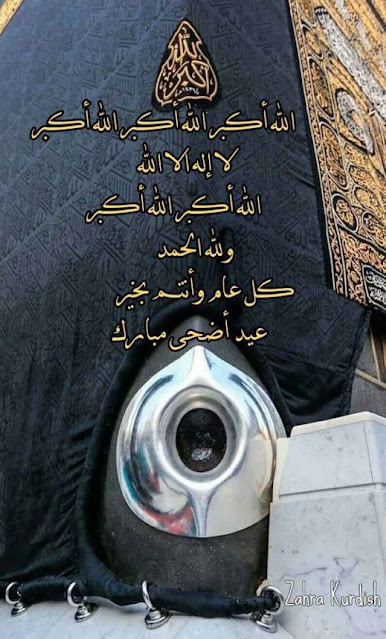 الله أكبر
الله أكبر الله أكبر الله أكبر
لا إله الا الله
الله أكبر الله أكبر
ولله الحمد
كل عام وأنتم بخير
عيد أضحى مبارك
Zahra Kurdish